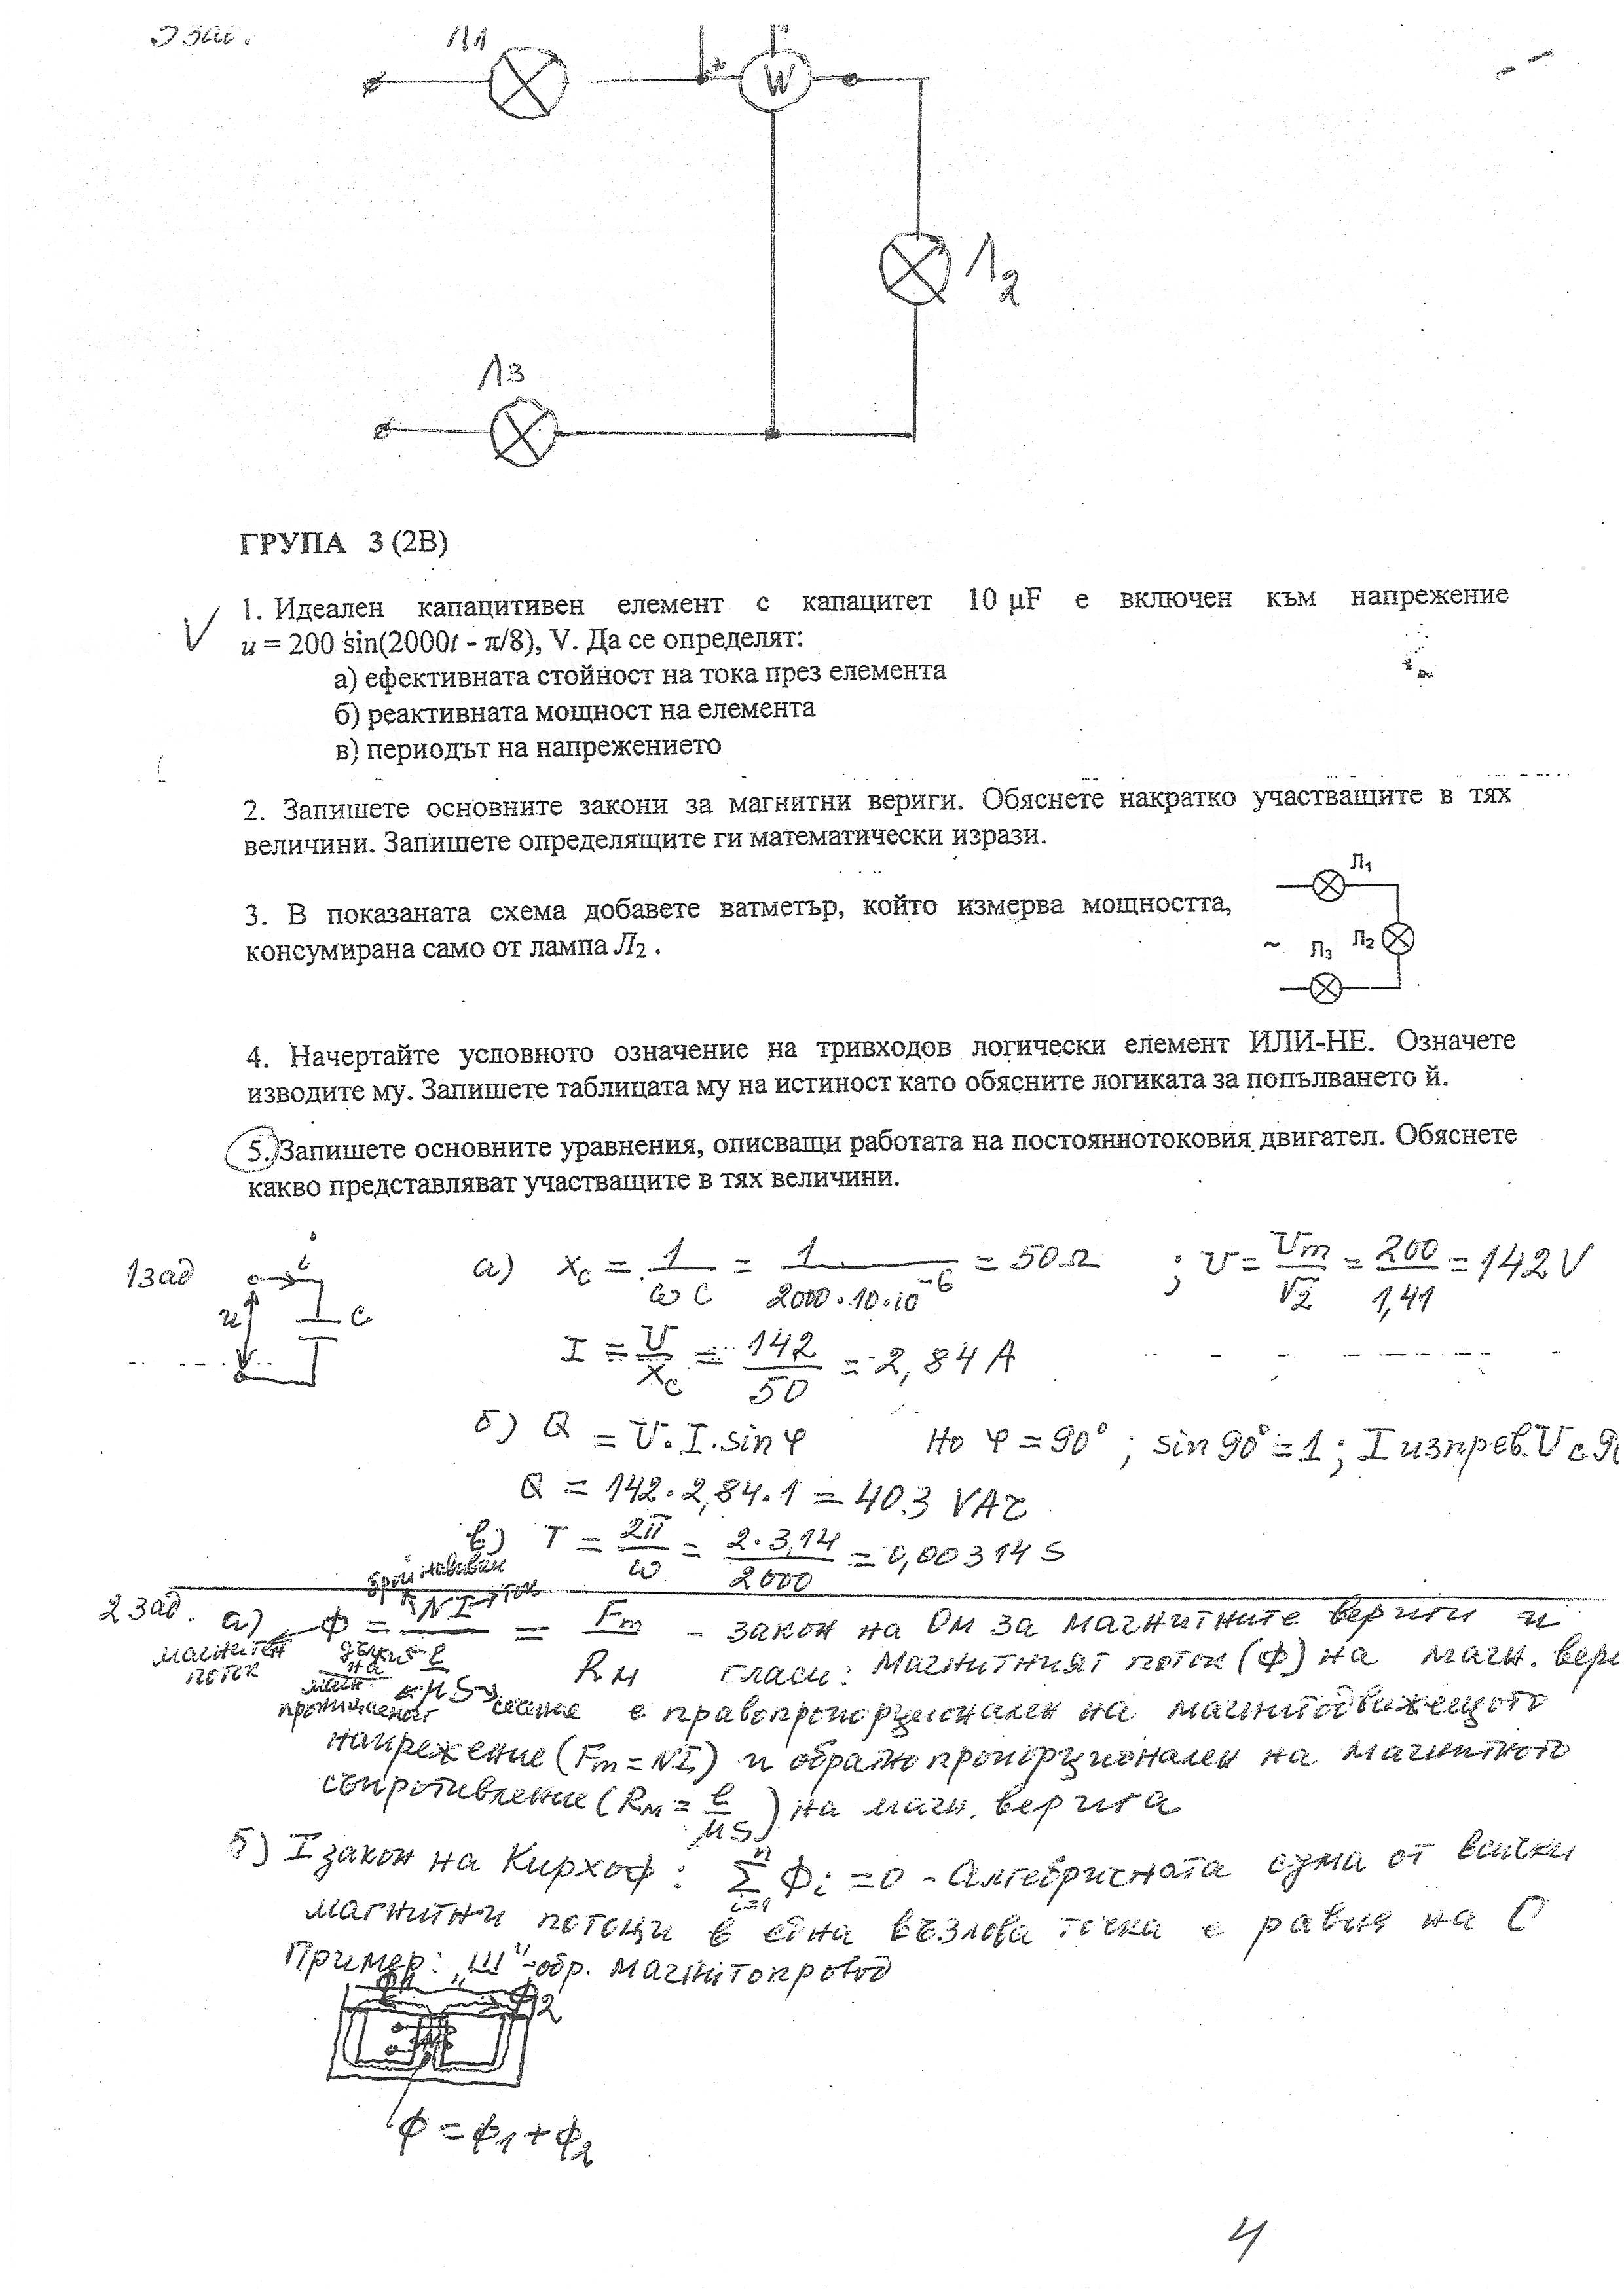 3 зад.
Л1
* W
Л2
Л3
ГРУПА 3 (2В)
1. Идеален капацитивен елемент с капацитет 10 μF е включен към напрежение
u = 200 sin(2000t - π/8), V. Да се определят:
а) ефективната стойност на тока през елемента
б) реактивната мощност на елемента
в) периодът на напрежението
2. Запишете основните закони за магнитни вериги. Обяснете накратко участващите в тях
величини. Запишете определящите ги математически изрази.
3. В показаната схема добавете ватметър, който измерва мощността,
консумирана само от лампа Л2 .
Л1
~ Л3 Л2
4. Начертайте условното означение на тривходов логически елемент ИЛИ-НЕ. Означете
изводите му. Запишете таблицата му на истиност като обясните логиката за попълването й.
5. Запишете основните уравнения, описващи работата на постояннотоковия двигател. Обяснете
какво представляват участващите в тях величини.
1 зад i u C
а) Xc = 1/ωC = 1/2000.10.10^-6 = 50Ω ; U = Um/√2 = 200/1,41 = 142 V
I = U/Xc = 142/50 = 2,84 A
б) Q = U.I.sin φ но φ = 90° ; sin 90° = 1 ; I изпрев. U с
Q = 142.2,84.1 = 403 VAr
в) T = 2π/ω = 2.3,14/2000 = 0,00314 S
брой навивки ток
2 зад. а) Φ = NI / l/μS = Fm/RM - закон на Ом за магнитните вериги и
магнитен поток дължина гласи: Магнитният поток (Φ) на магн.
сечение е правопропорционален на магнитодвижещото
напрежение (Fm = NI) и обратнопропорционален на магнитното
съпротивление (RM = l/μS) на магн. верига
б) I закон на Кирхоф : Σ i=1 n Φi = 0 - Алгебричната сума от всички
магнитни потоци в една възлова точка е равна на 0
Пример: „Ш"-обр. магнитопровод
Φ1 Φ2
Φ = Φ1 + Φ2
4